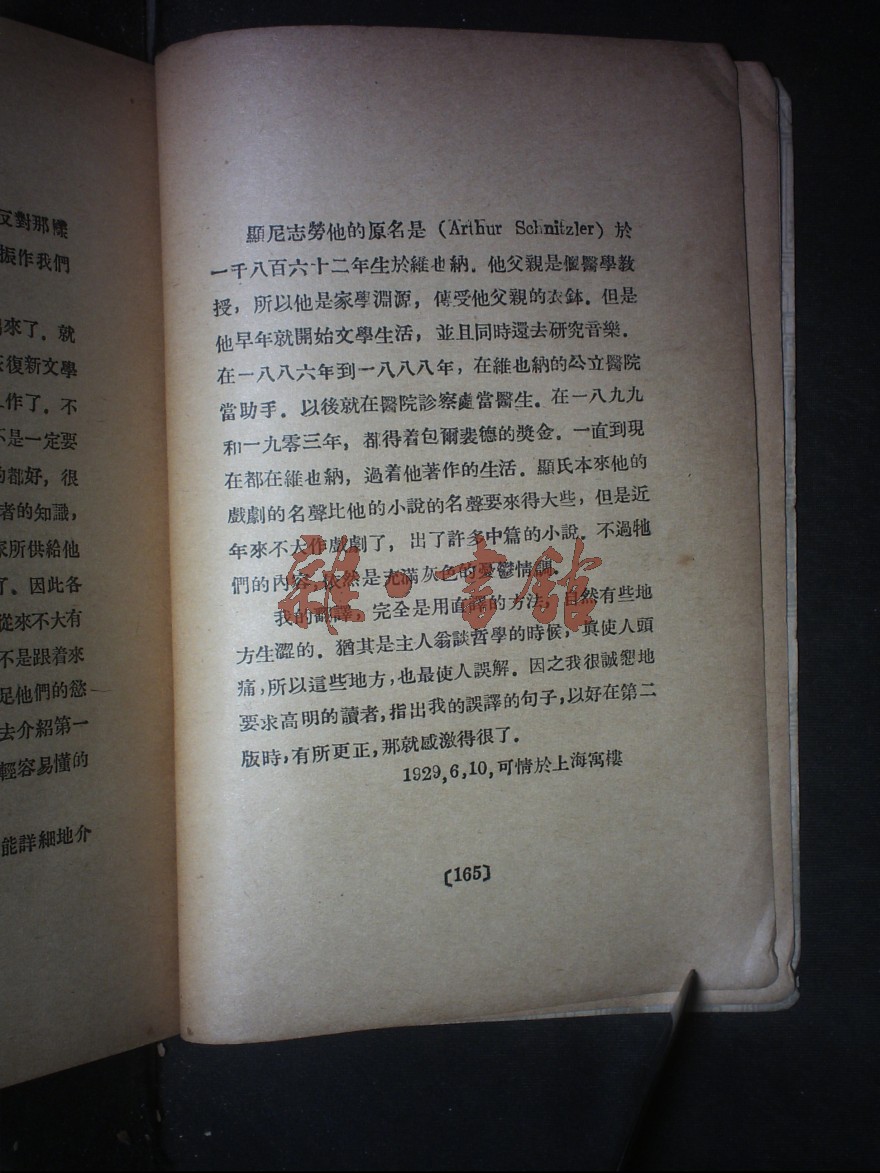 反對那樣
振作我們
來了．就
復新文學
作了．不
不是一定要
的都好，很
者的知識，
家所供給他
了．因此各
從來不大有
不是跟着來
足他們的慾
去介紹第一
輕容易懂的
能詳細地介
顯尼志勞他的原名是（Arthur Schnitzler）於
一千八百六十二年生於維也納．他父親是個醫學教
授，所以他是家學淵源，傳受他父親的衣鉢．但是
他早年就開始文學生活，並且同時還去研究音樂．
在一八八六年到一八八八年，在維也納的公立醫院
當助手．以後就在醫院診察處當醫生．在一八九九
和一九零三年，都得着包爾裴德的獎金．一直到現
在都在維也納，過着他著作的生活．顯氏本來他的
戲劇的名聲比他的小說的名聲要來得大些，但是近
年來不大作戲劇了，出了許多中篇的小說．不過牠
們的內容，依然是充滿灰色的憂鬱情調．
我的翻譯，完全是用直譯的方法，自然有些地
方生澀的．猶其是主人翁談哲學的時候，真使人頭
痛，所以這些地方，也最使人誤解．因之我很誠懇地
要求高明的讀者，指出我的誤譯的句子，以好在第二
版時，有所更正，那就感激得很了．
1929,6,10,可情於上海寓樓
〔165〕
雜·書館